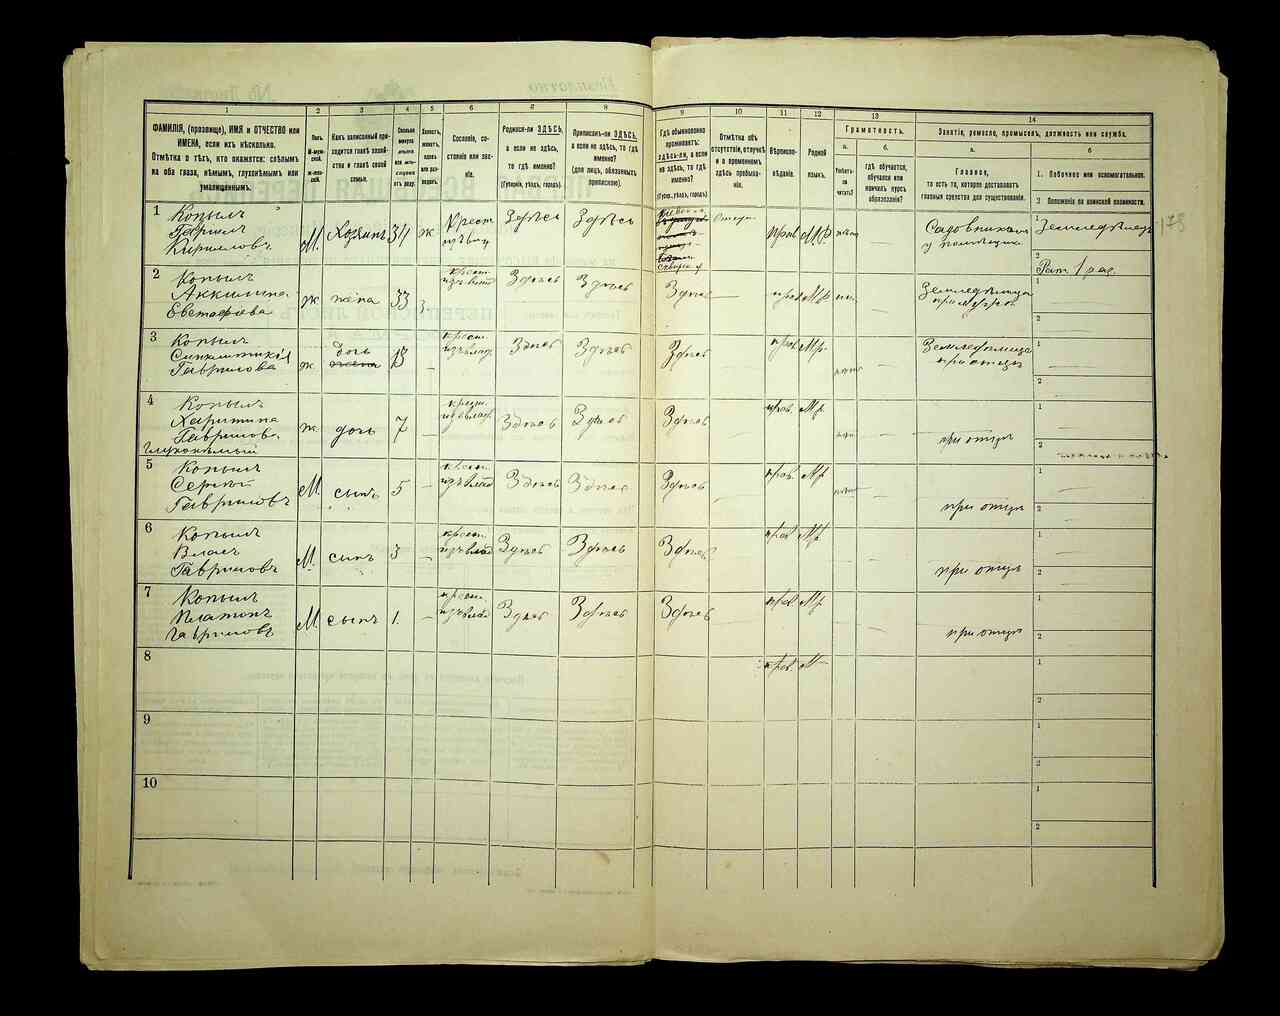 1 2 3 4 5 6 7 8 9 10 11 12 13 14
ФАМИЛІЯ, (прозвище), ИМЯ и ОТЧЕСТВО или
ИМЕНА, если ихъ нѣсколько.
Отмѣтка о тѣхъ, кто окажется: слѣпымъ
на оба глаза, нѣмымъ, глухонѣмымъ или
умалишеннымъ.
Полъ
М-муж-
ской.
Ж-жен-
скій.
Какъ записанный при-
ходится главѣ хозяй-
ства и главѣ своей
семьи.
Сословіе, со-
стояніе или зва-
ніе.
Родился-ли ЗДѢСЬ,
а если не здѣсь,
то гдѣ именно?
(Губернія, уѣздъ, городъ).
Приписанъ-ли ЗДѢСЬ,
а если не здѣсь, то гдѣ
именно?
(для лицъ, обязанныхъ
припискою).
Гдѣ обыкновенно
проживаетъ:
здѣсь-ли, а если
не здѣсь, то гдѣ
именно?
(Губерн., уѣздъ, городъ)
Отмѣтка объ
отсутствіи, отлучкѣ
и о временномъ
здѣсь пребыва-
ніи.
Вѣроиспо-
вѣданіе.
Родной
языкъ.
Грамотность.
а.
Умѣетъ-
ли
читать?
б.
гдѣ обучается,
обучался или
кончилъ курсъ
образованія?
Занятіе, ремесло, промыселъ, должность или служба.
а.
Главное,
то есть то, которое доставляетъ
главныя средства для существованія.
б
1. Побочное или вспомогательное.
2 Положеніе по воинской повинности.
1 Копылъ
Гаврилъ
Кирилловъ
М. Хозяинъ 34 ж Крест.
Здѣсь Здѣсь
прав. М.р.
Садовникомъ
у помѣщика
1 Земледѣлецъ
2
Рат. 1 раз.
178
2 Копылъ
Аккилина
Евстафіева
ж жена 33 з. крест.
изъ влад. Здѣсь Здѣсь Здѣсь прав. М.р.
Земледѣлица
1
2
3 Копылъ
Гаврилова
ж дочь 13 крест.
изъ влад. Здѣсь Здѣсь Здѣсь прав. М.р.
Земледѣлица
при отцѣ
1
2
4 Копылъ
Харитина
Гаврилова.
глухонѣмый
ж дочь 7 крест.
изъ влад. Здѣсь Здѣсь Здѣсь прав. М.р.
при отцѣ
1
2
5 Копылъ
Сергѣй
Гавриловъ
М. сынъ 5 крест.
изъ влад. Здѣсь Здѣсь Здѣсь прав. М.р.
при отцѣ
1
2
6 Копылъ
Власъ
Гавриловъ
М. сынъ 3 крест.
изъ влад. Здѣсь Здѣсь Здѣсь прав. М.р.
при отцѣ
1
2
7 Копылъ
Платонъ
Гавриловъ
М. сынъ 1. крест.
изъ влад. Здѣсь Здѣсь Здѣсь прав. М.р.
при отцѣ
1
2
8 прав. М
1
2
9
1
2
10
1
2